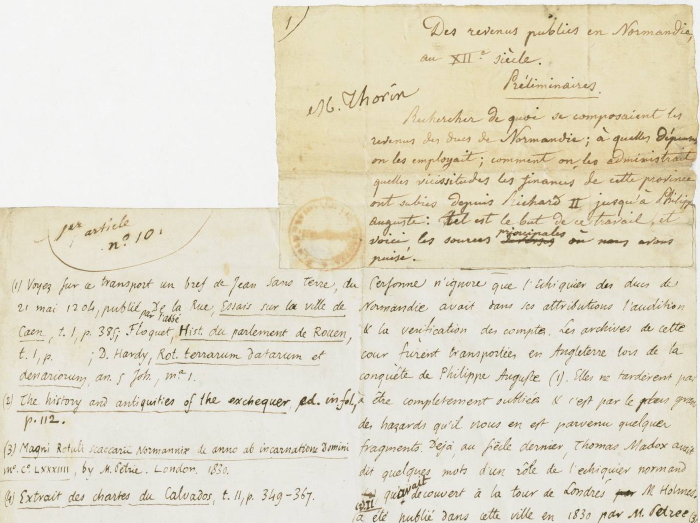 1)
Des revenus publics en Normandie,
au XIIe siècle.
Préliminaires.
M. Thorin
Rechercher de quoi se composaient les
revenus des ducs de Normandie; à quelles dépenses
on les employait; comment on les administrait
quelles vicissitudes les finances de cette province
ont subies depuis Richard II jusqu'à Philippe
Auguste: tel est le but de ce travail, et
voici les sources principales où nous avons
puisé.
1er article
n° 10.
(1) Voyez sur ce transport un bref de Jean Sans terre, du
21 mai 1204, publié par l'abbé De la Rue, Essais sur la ville de
Caen, t. 1, p. 385; Floquet, Hist. du parlement de Rouen,
t. 1, p. ; D. Hardy, Rot. terrarum datarum et
denariorum, an. 5 Joh, ma 1.
(2) The history and antiquities of the exchequer, ed. in fol,
p. 112.
(3) Magni Rotuli scaccarie Normannie de anno ab incarnatione Domini
mo. Co LXXXIIII, by M. Petrie. London. 1830.
(4) Extrait des chartes du Calvados, t. II, p. 349-367.
Personne n'ignore que l'Echiquier des ducs de
Normandie avait dans ses attributions l'audition
& la vérification des compte. Les archives de cette
cour furent transportées en Angleterre lors de la
conquête de Philippe Auguste (1). Elles ne tardèrent pas
à être complètement oubliées & c'est par le plus grand
des hazards qu'il nous en est parvenu quelques
fragments. Déjà, au siècle dernier, Thomas Madox avait
dit quelques mots d'un rôle de l'echiquier normand
qu'il avait découvert à la tour de Londres M. Holmes
a été publié dans cette ville en 1830 par M. Petree (3